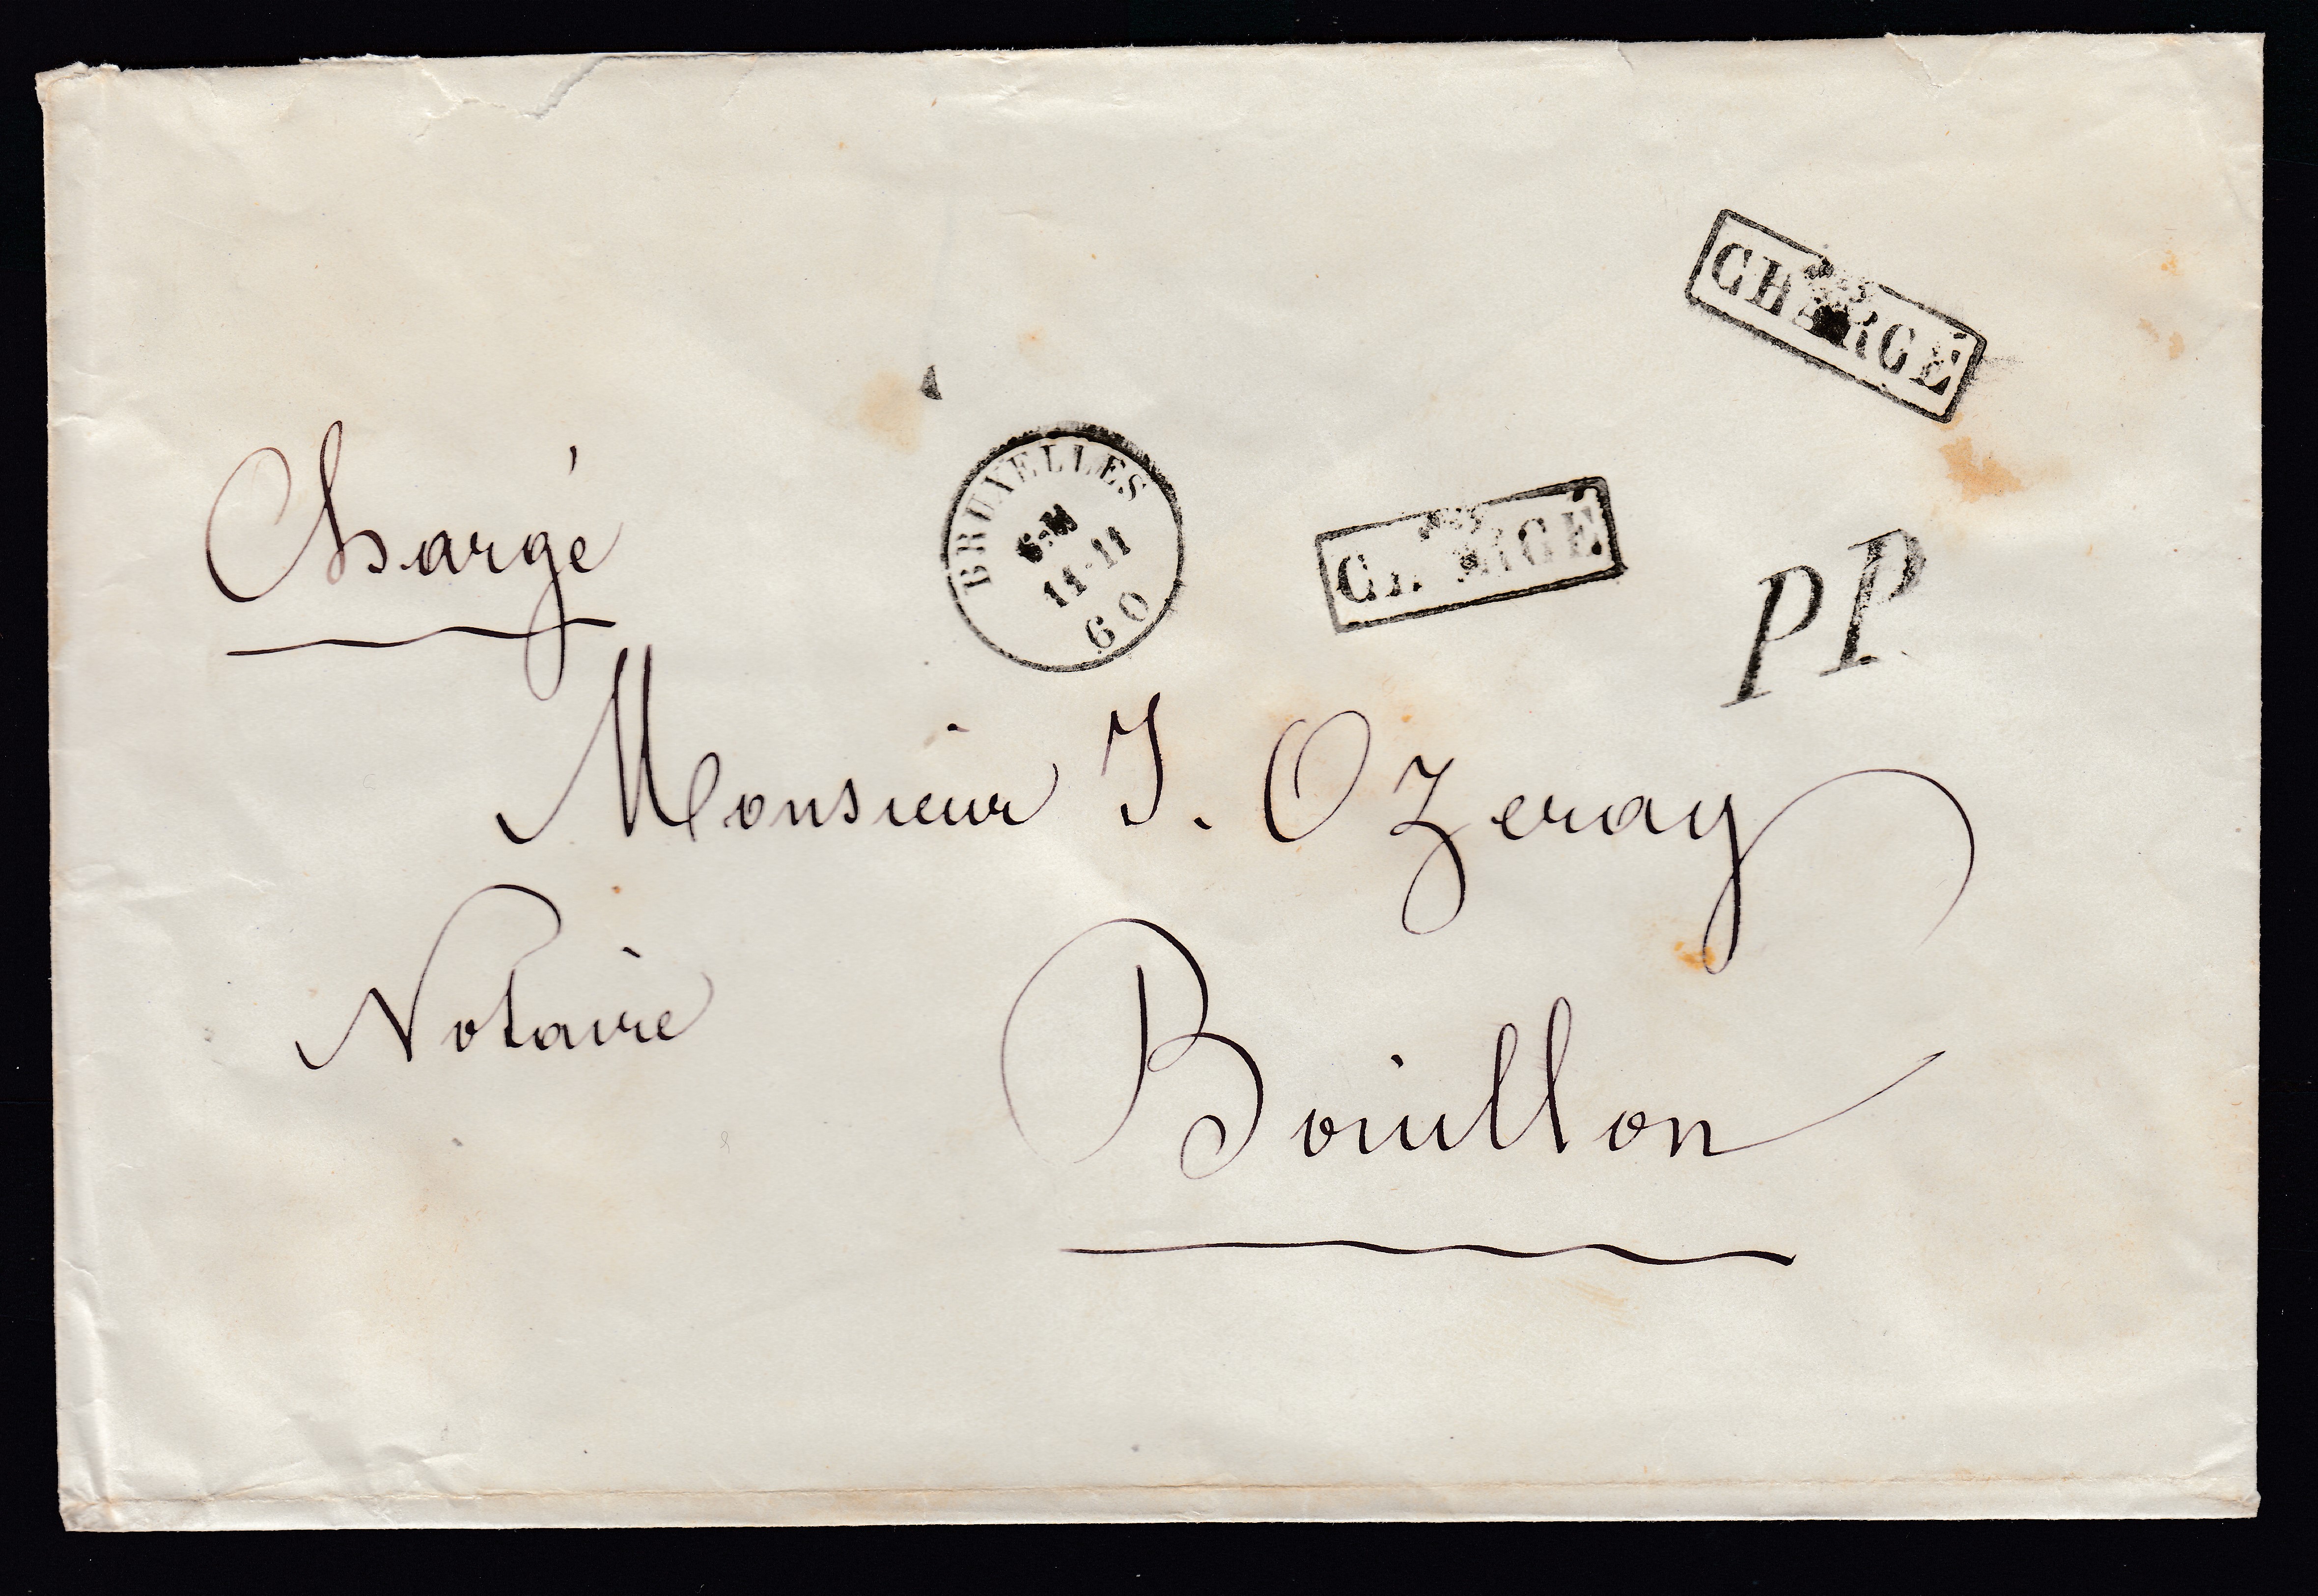 CHARGÉ
Chargé
BRUXELLES
11-11
60
CHARGÉ
PP
Monsieur J. Ozeray
Notaire
Bouillon